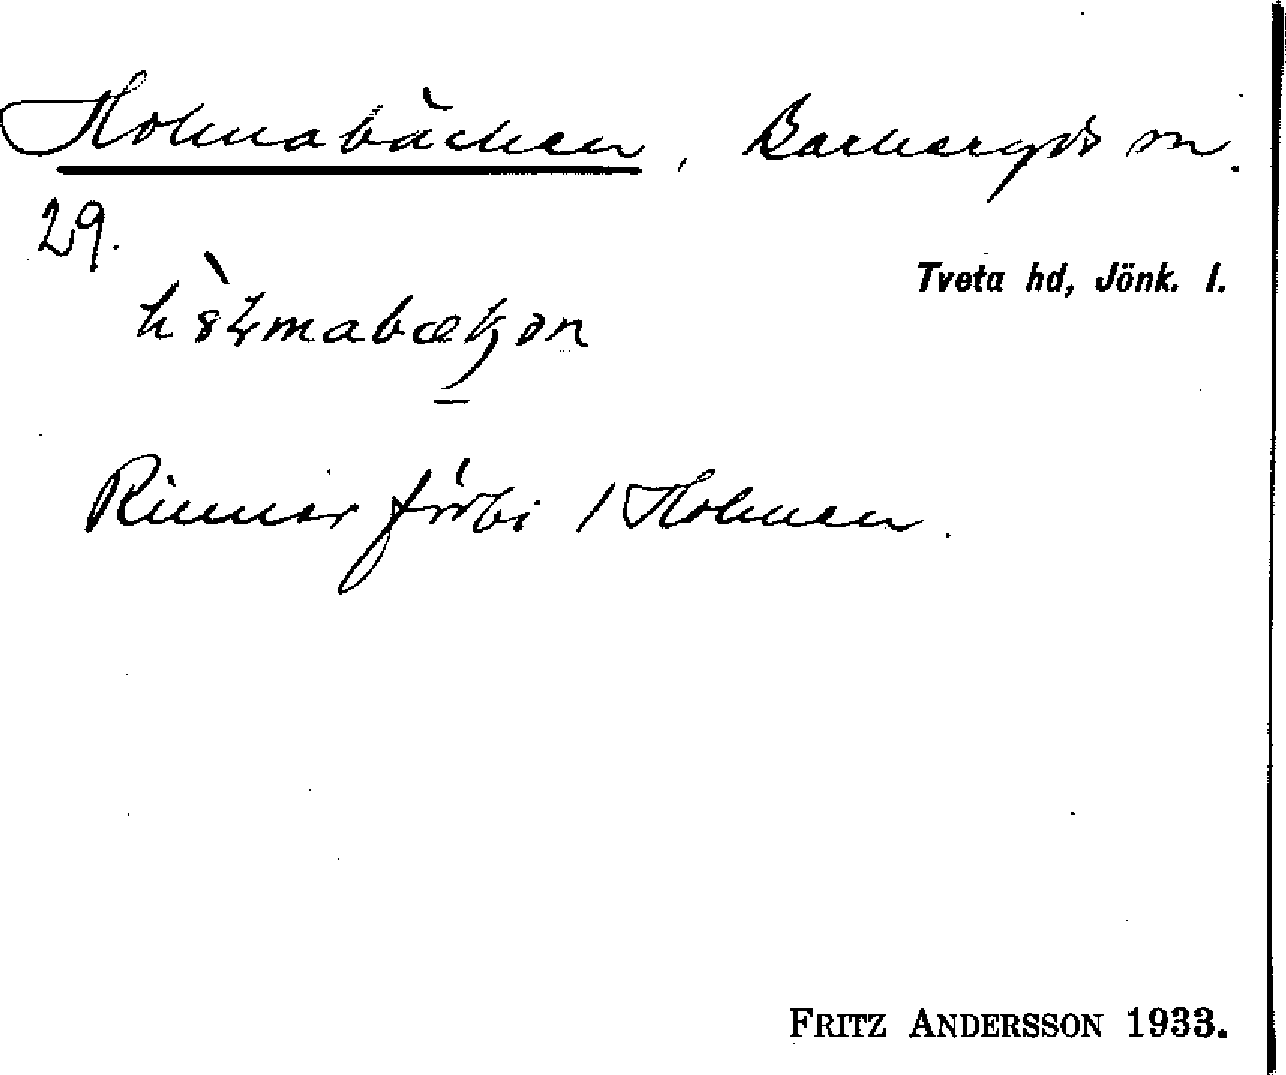 Holmabäcken, Barkeryds sn.
29.
Tveta hd, Jönk. l.
Rinner förbi / Holmen.
FRITZ ANDERSSON 1933.